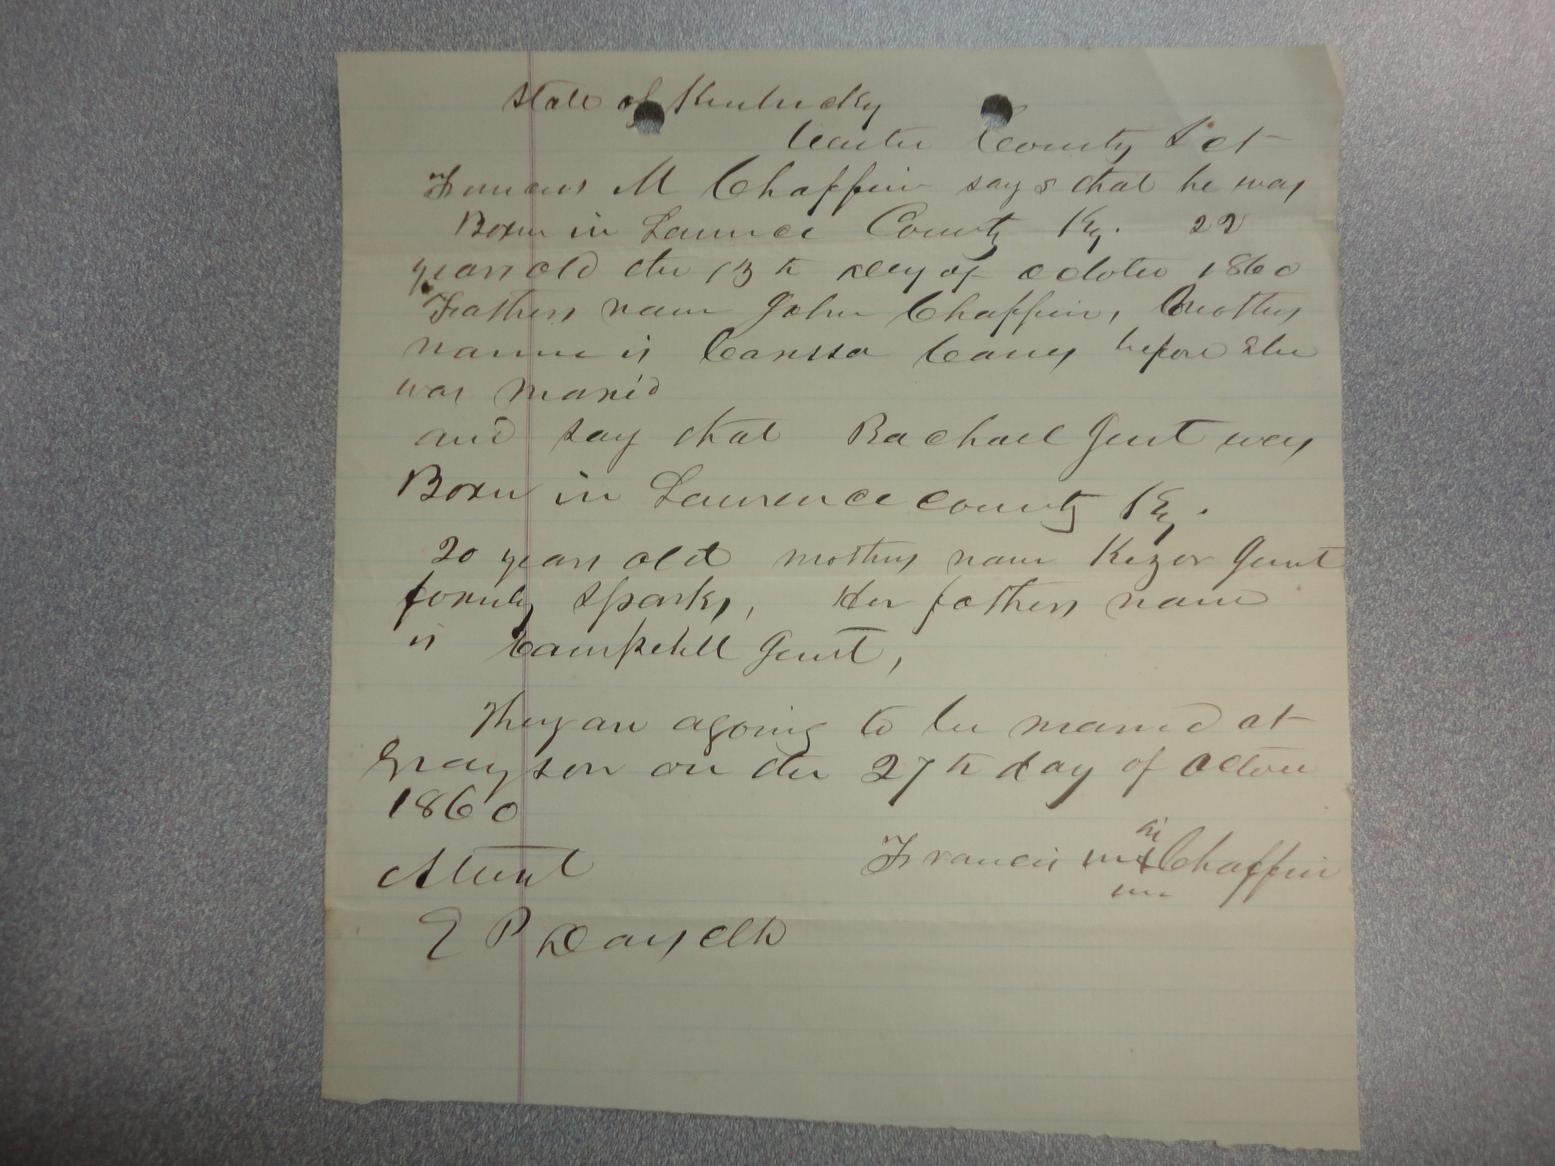 State of Kentucky
Carter County Sct
Francis M Chaffin says that he was
Born in Laurnce County Ky. 22
years old the 13th day of October 1860
Fathers name John Chaffin, Mothers
name is Caney before She
was maried
and say that Rachael Gent was
Born in Laurence county Ky.
20 years old mothers name Kezor Gent
formly Sparks, Her fathers name
is Campbell Gent,
They are agoing to be maried at
Grayson on the 27th day of
1860
his
Francis m x Chaffin
Attest
E P Davis Clk